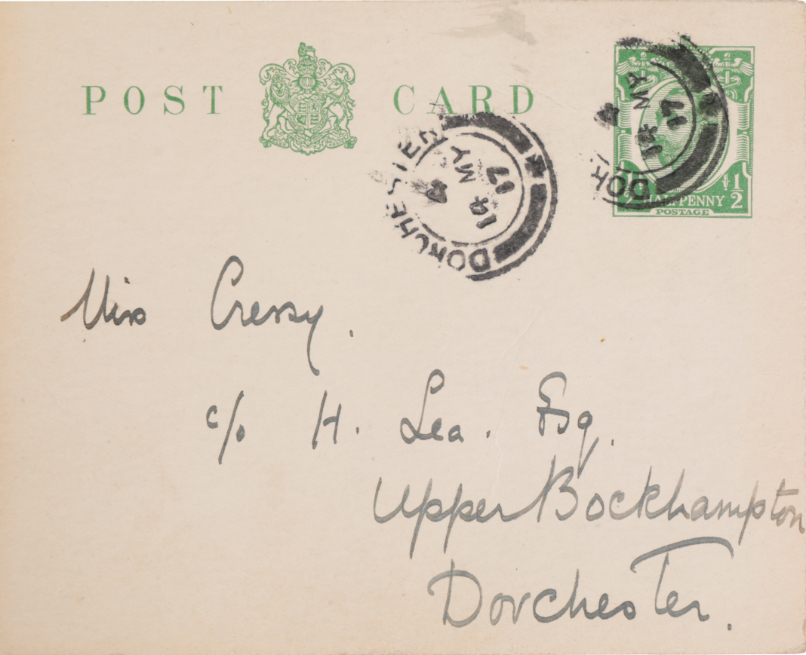 POST CARD
DORCHESTER
MY
17
DOR
MY
17
HALFPENNY ½
POSTAGE
Miss Cressy.
c/o H. Lea. Esq.
Upper Bockhampton
Dorchester.